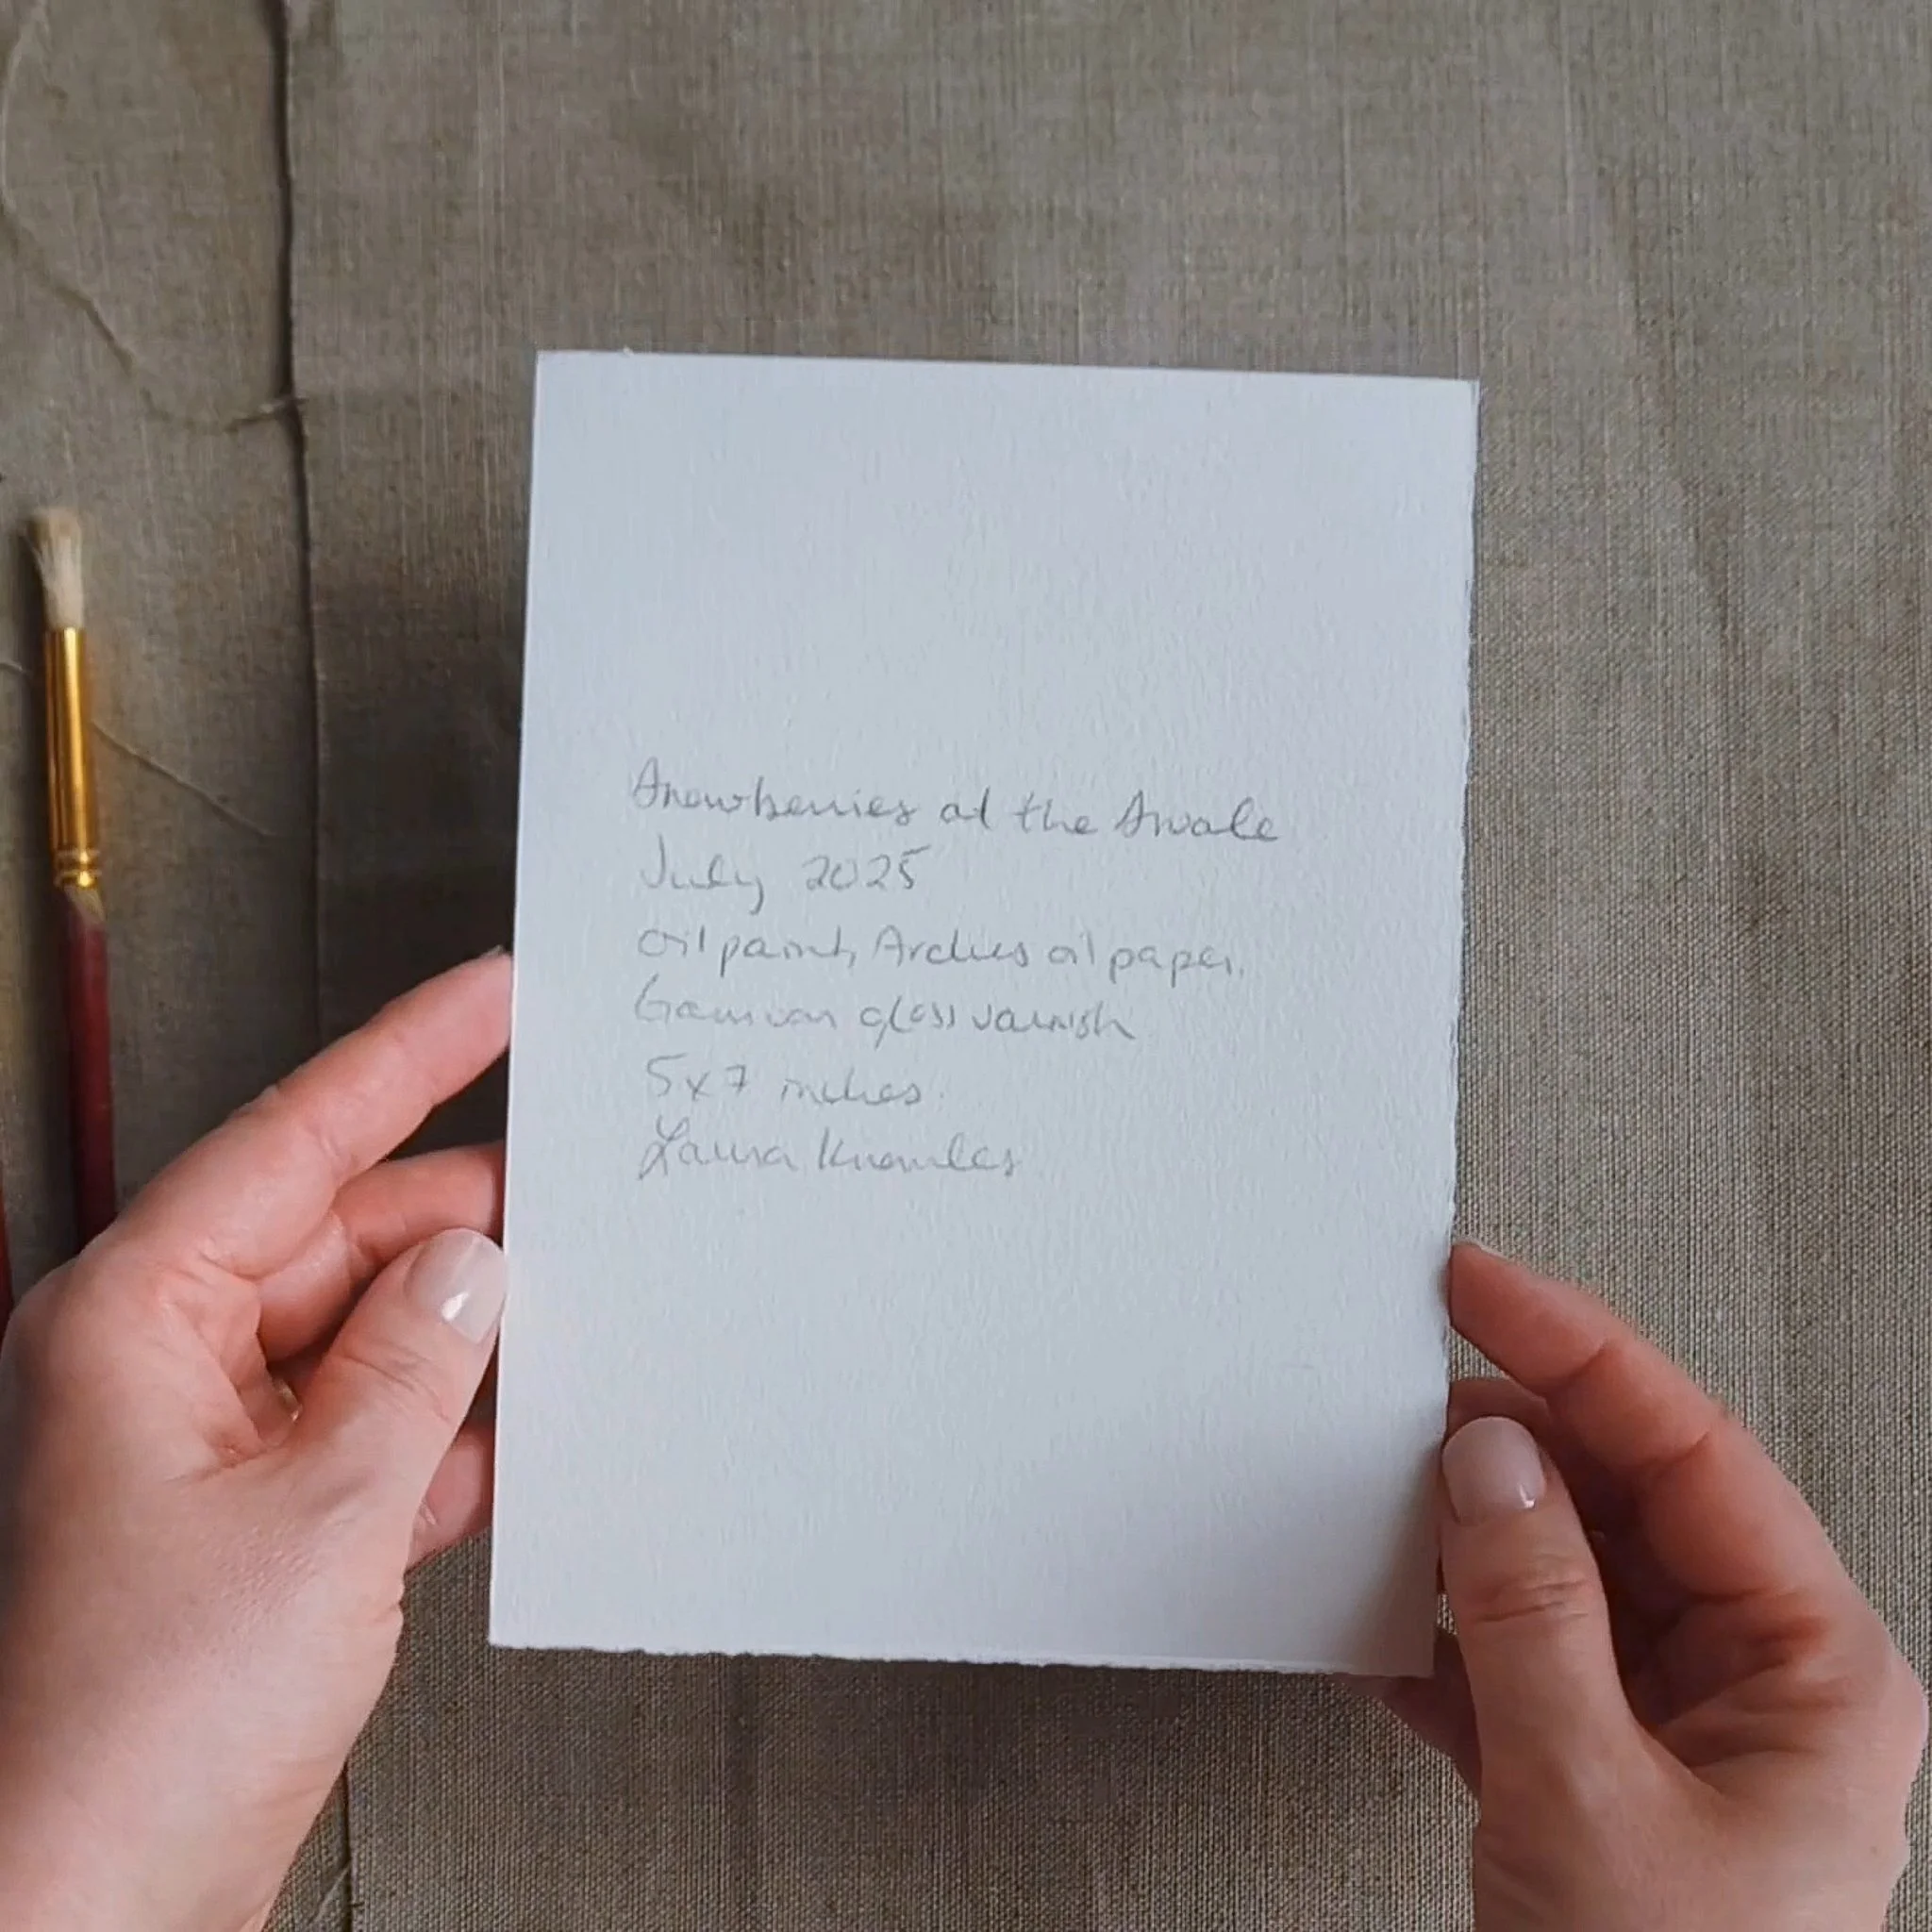 Snowberries at the Swale
July 2025
Oil paint, Arches oil paper,
Gamvar gloss varnish
5x7 inches.
Laura Knowles